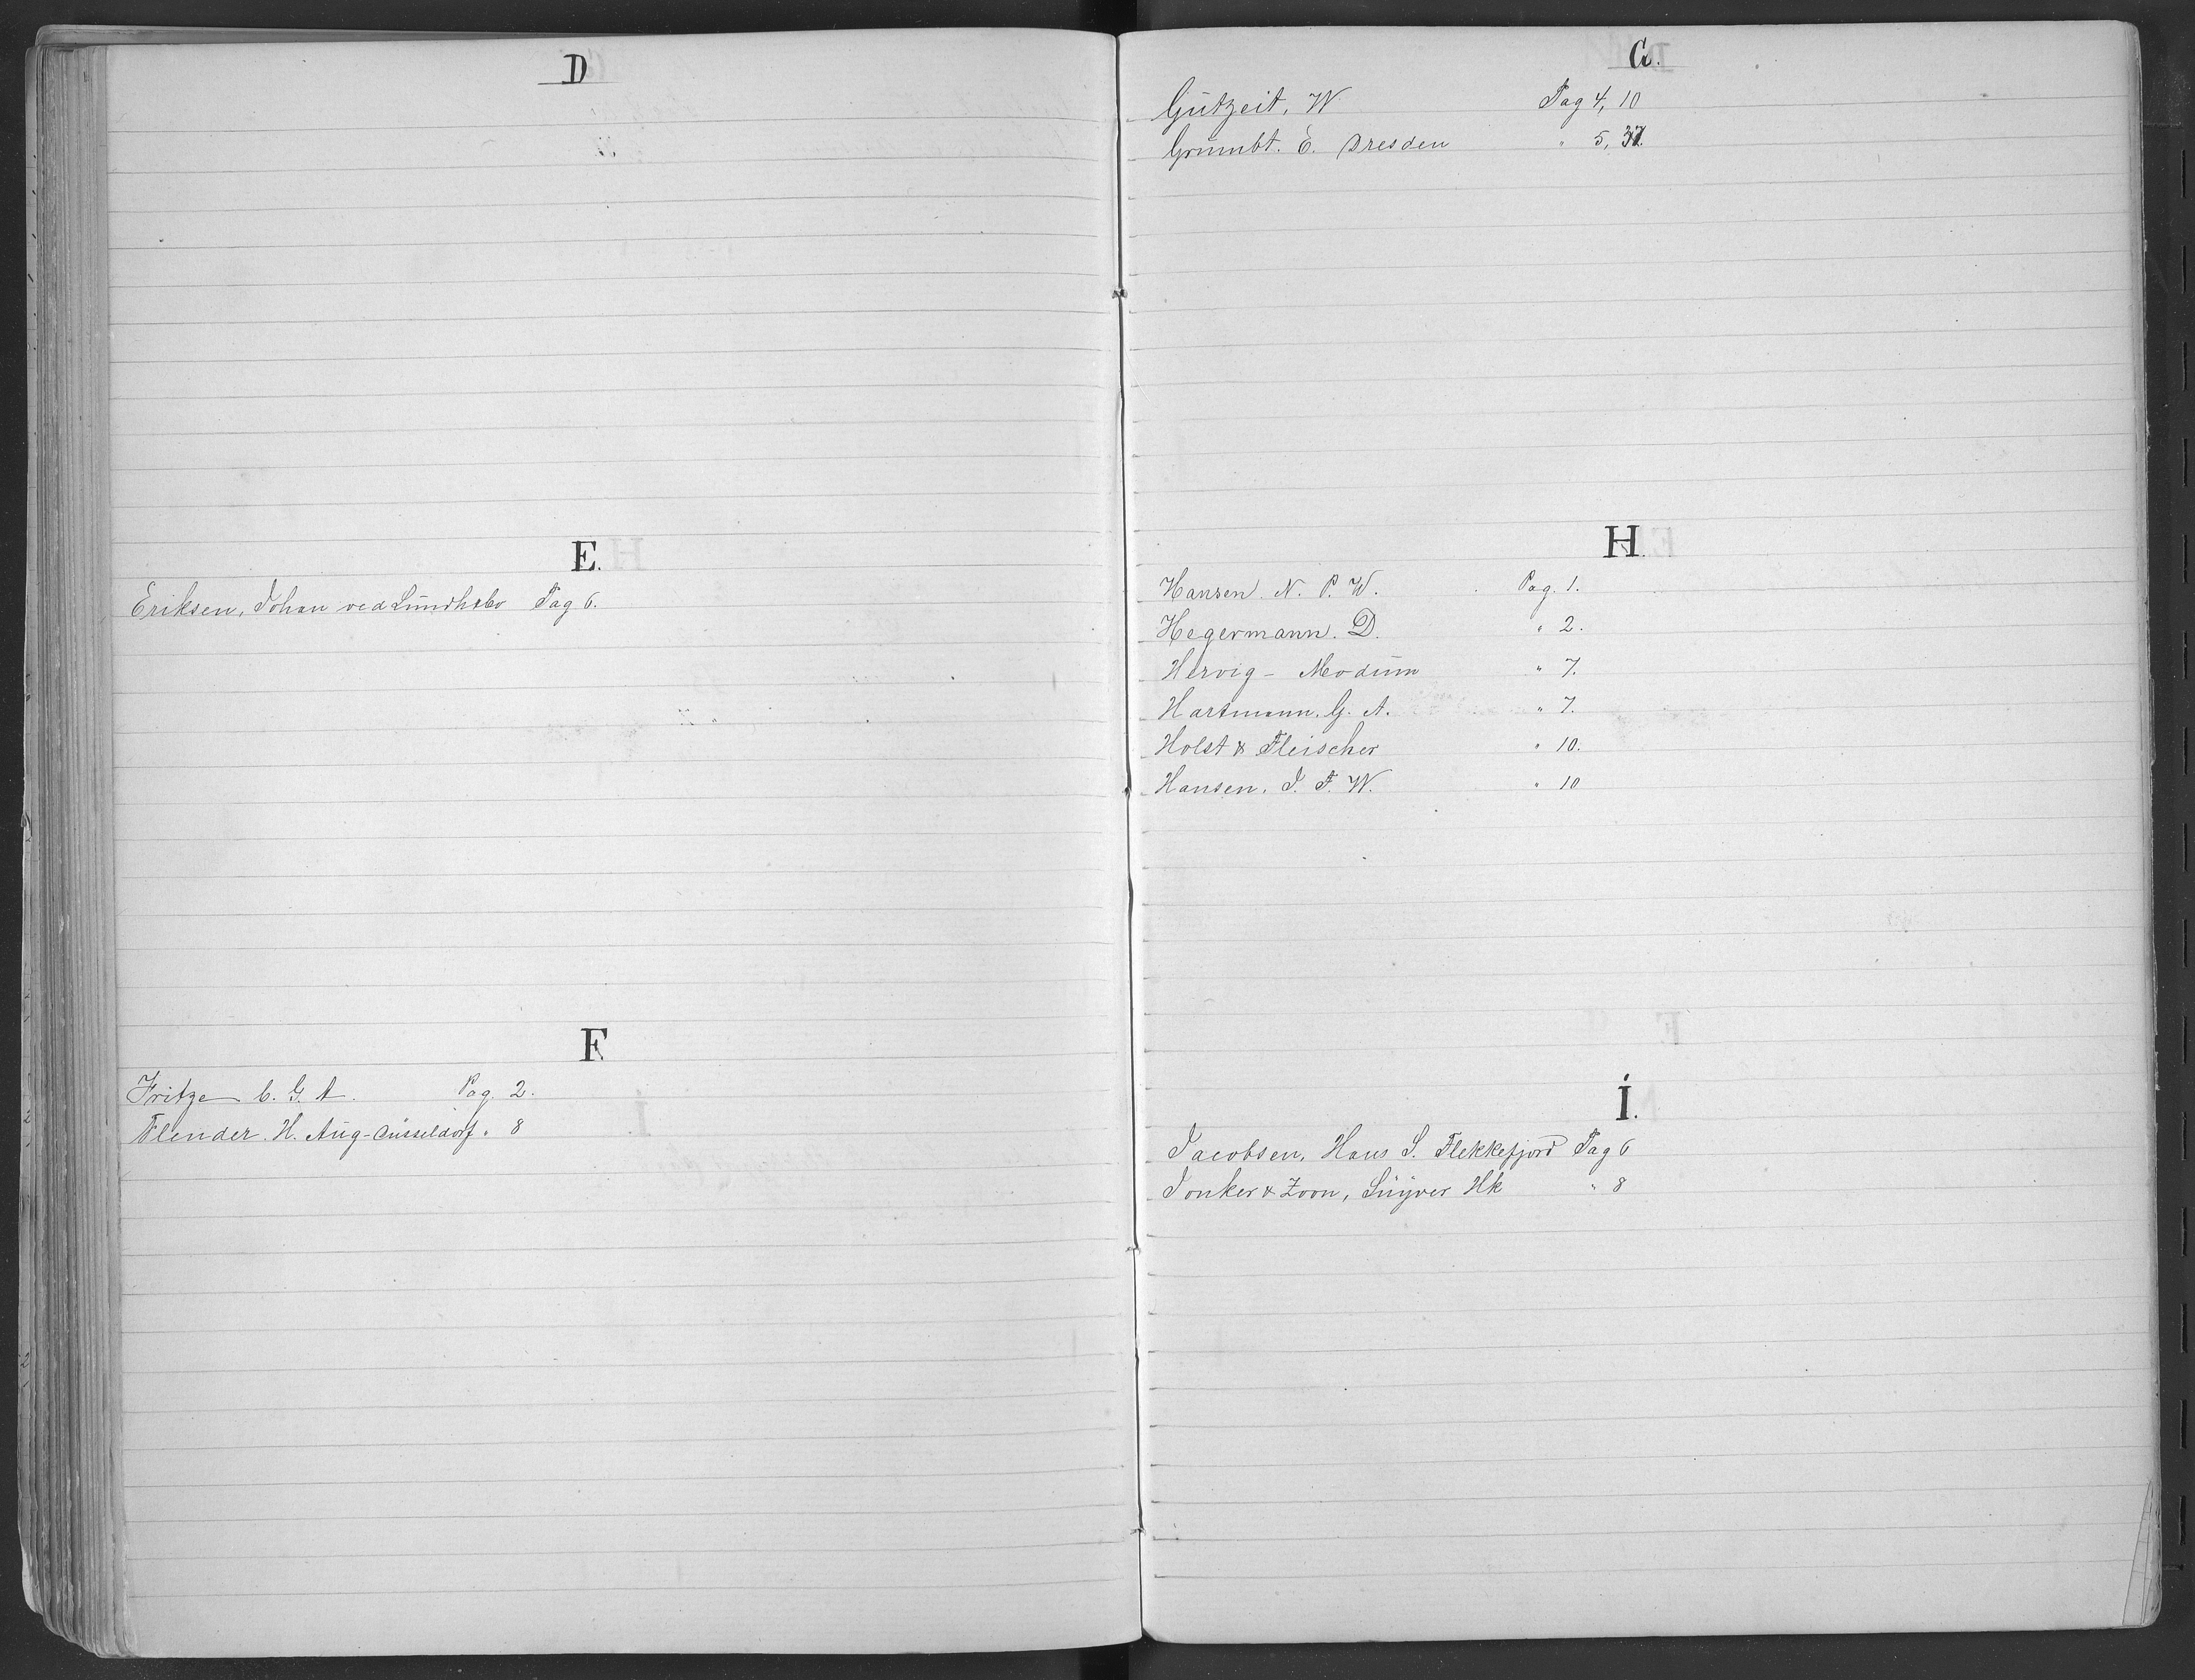 D
E.
Eriksen, Johan ved Lundhsbo Pag 6.
F
Fritze C. G. A. Pag. 2.
Flender. H. Aug-Düsseldorf. " 8
G.
Gutzeit, W Pag 4, 10
Grumbt. E. Dresden " 5, 37.
H.
Hansen. N. P. W. Pag. 1.
Hegermann. D. " 2.
Hervig - Modum " 7.
Hartmann. G. A. " 7.
Holst & Fleischer " 10.
Hansen, J. F. W. " 10
I.
Jacobsen, Hans S. Flekkefjord Pag 6
Jonker & Zoon, Suyver Hk " 8